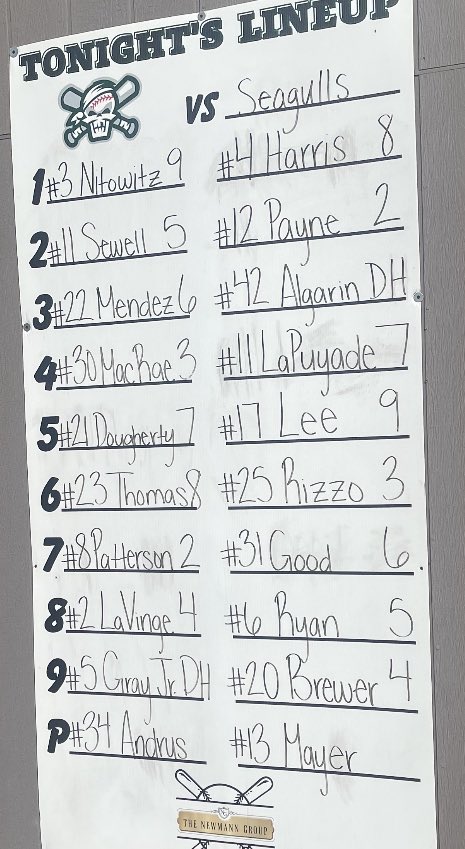 TONIGHT'S LINEUP
VS Seagulls
1 #3 Nitowitz 9 #4 Harris 8
2 #11 Sewell 5 #12 Payne 2
3 #22 Mendez 6 #42 Algarin DH
4 #30 MacRae 3 #11 LaPuyade 7
5 #21 Dougherty 7 #17 Lee 9
6 #23 Thomas 8 #25 Rizzo 3
7 #8 Patterson 2 #31 Good 6
8 #2 LaVinge 4 #6 Ryan 5
9 #5 Gray Jr. DH #20 Brewer 4
P #34 Andrus #13 Mayer
THE NEWMANN GROUP